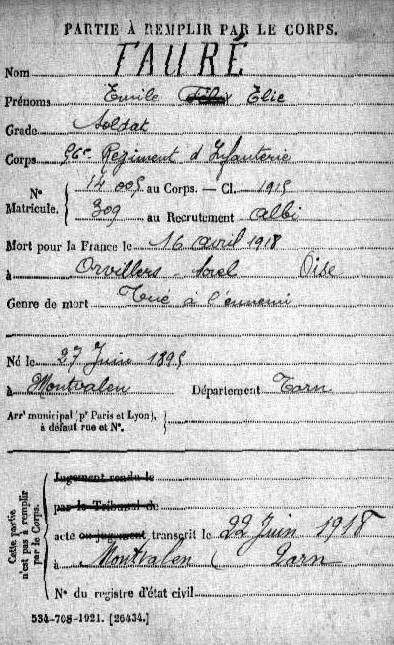 PARTIE À REMPLIR PAR LE CORPS.
Nom TAURÉ
Prénoms Emile Félix Elie
Grade Soldat
Corps 96e Régiment d'Infanterie
N° Matricule. { 14 005 au Corps. — Cl. 1915
309 au Recrutement Albi
Mort pour la France le 16 avril 1918
à Orvillers - Sorel Oise
Genre de mort Tué à l'ennemi
Né le 27 Juin 1895
à Montvalen Département Tarn
Arrt municipal (pr Paris et Lyon), à défaut rue et N°.
Cette partie n'est pas à remplir par le Corps.
Jugement rendu le
par le Tribunal de
acte ou jugement transcrit le 22 Juin 1918
à Montvalen (Tarn
N° du registre d'état civil
534-708-1921. [26434.]